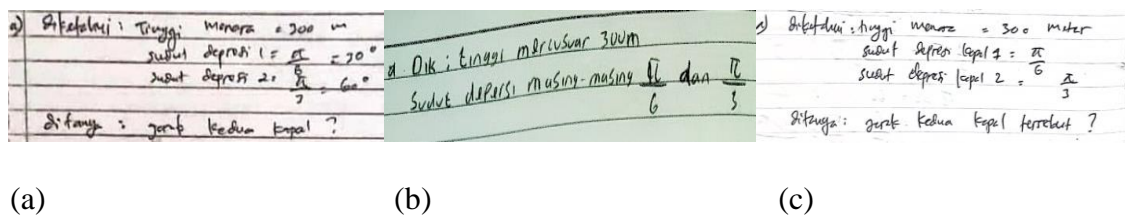 a) Diketahui : Tinggi menara = 300 m
sudut depresi 1 = π/6 = 30°
sudut depresi 2 = π/3 = 60°
ditanya : jarak kedua kapal ?
a Dik : tinggi mercusuar 300m
Sudut depersi masing-masing π/6 dan π/3
a) diketahui : tinggi menara = 300 meter
sudut depresi kapal 1 = π/6
sudut depresi kapal 2 = π/3
ditanya : jarak kedua kapal tersebut ?
(a)
(b)
(c)